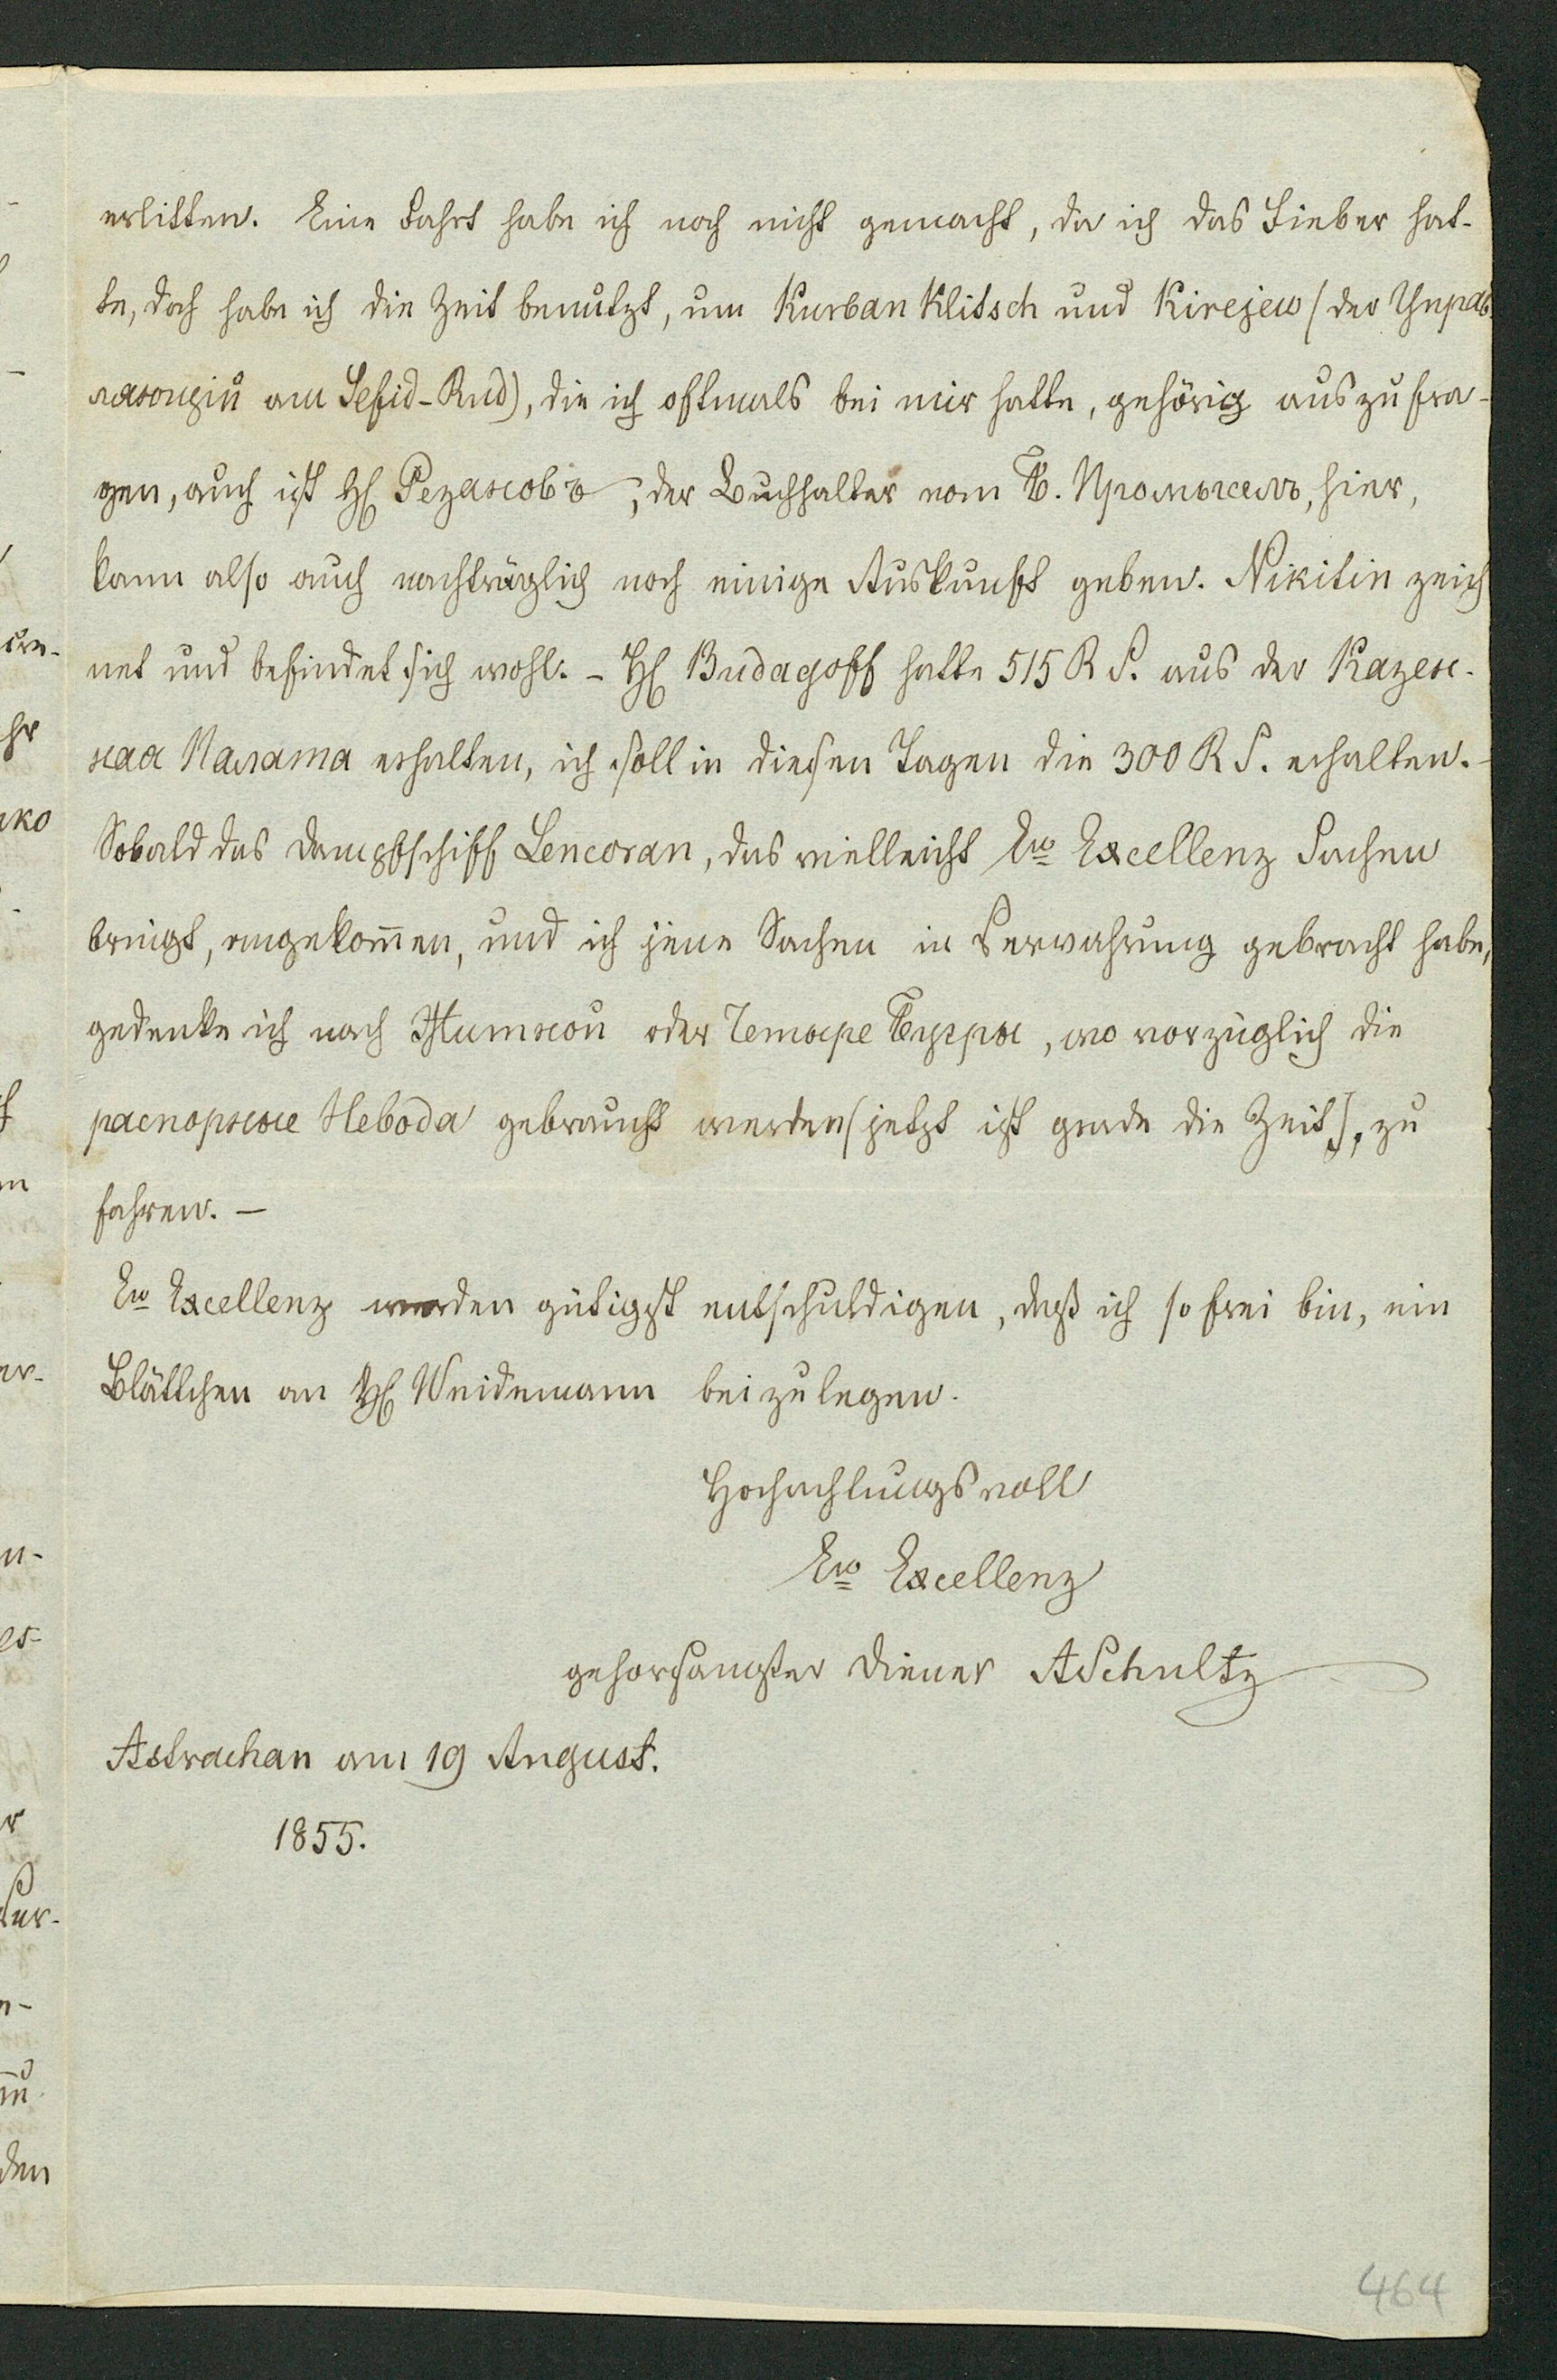 erlitten. Eine Fahrt habe ich noch nicht gemacht, da ich das Fieber hat-
te, doch habe ich die Zeit benutzt, um Kurban Klitsch und Kirejew (der Управ-
ляющій am Sefid-Rud), die ich oftmals bei mir hatte, gehörig auszufra-
gen, auch ist H Резановъ, der Buchhalter vom Б. Промыселъ, hier,
kann also auch nachträglich noch einige Auskunft geben. Nikitin zeich
net und befindet sich wohl. – H Budagoff hatte 515 R S. aus der Казен-
ная Палата erhalten, ich soll in diesen Tagen die 300 R S. erhalten. –
Sobald das Dampfschiff Lencoran, das vielleicht Ew Excellenz Sachen
bringt, angekom̄en, und ich jene Sachen in Verwahrung gebracht habe,
gedenke ich nach Житной oder Четыре Бугры, wo vorzüglich die
распорные Невода gebraucht werden (jetzt ist grade die Zeit), zu
fahren. –
Ew Excellenz werden gütigst entschuldigen, daß ich so frei bin, ein
Blättchen an H Weidemann beizulegen.
Hochachtungsvoll
Ew Excellenz
gehorsamster Diener ASchultz
Astrachan am 19 August.
1855.
464